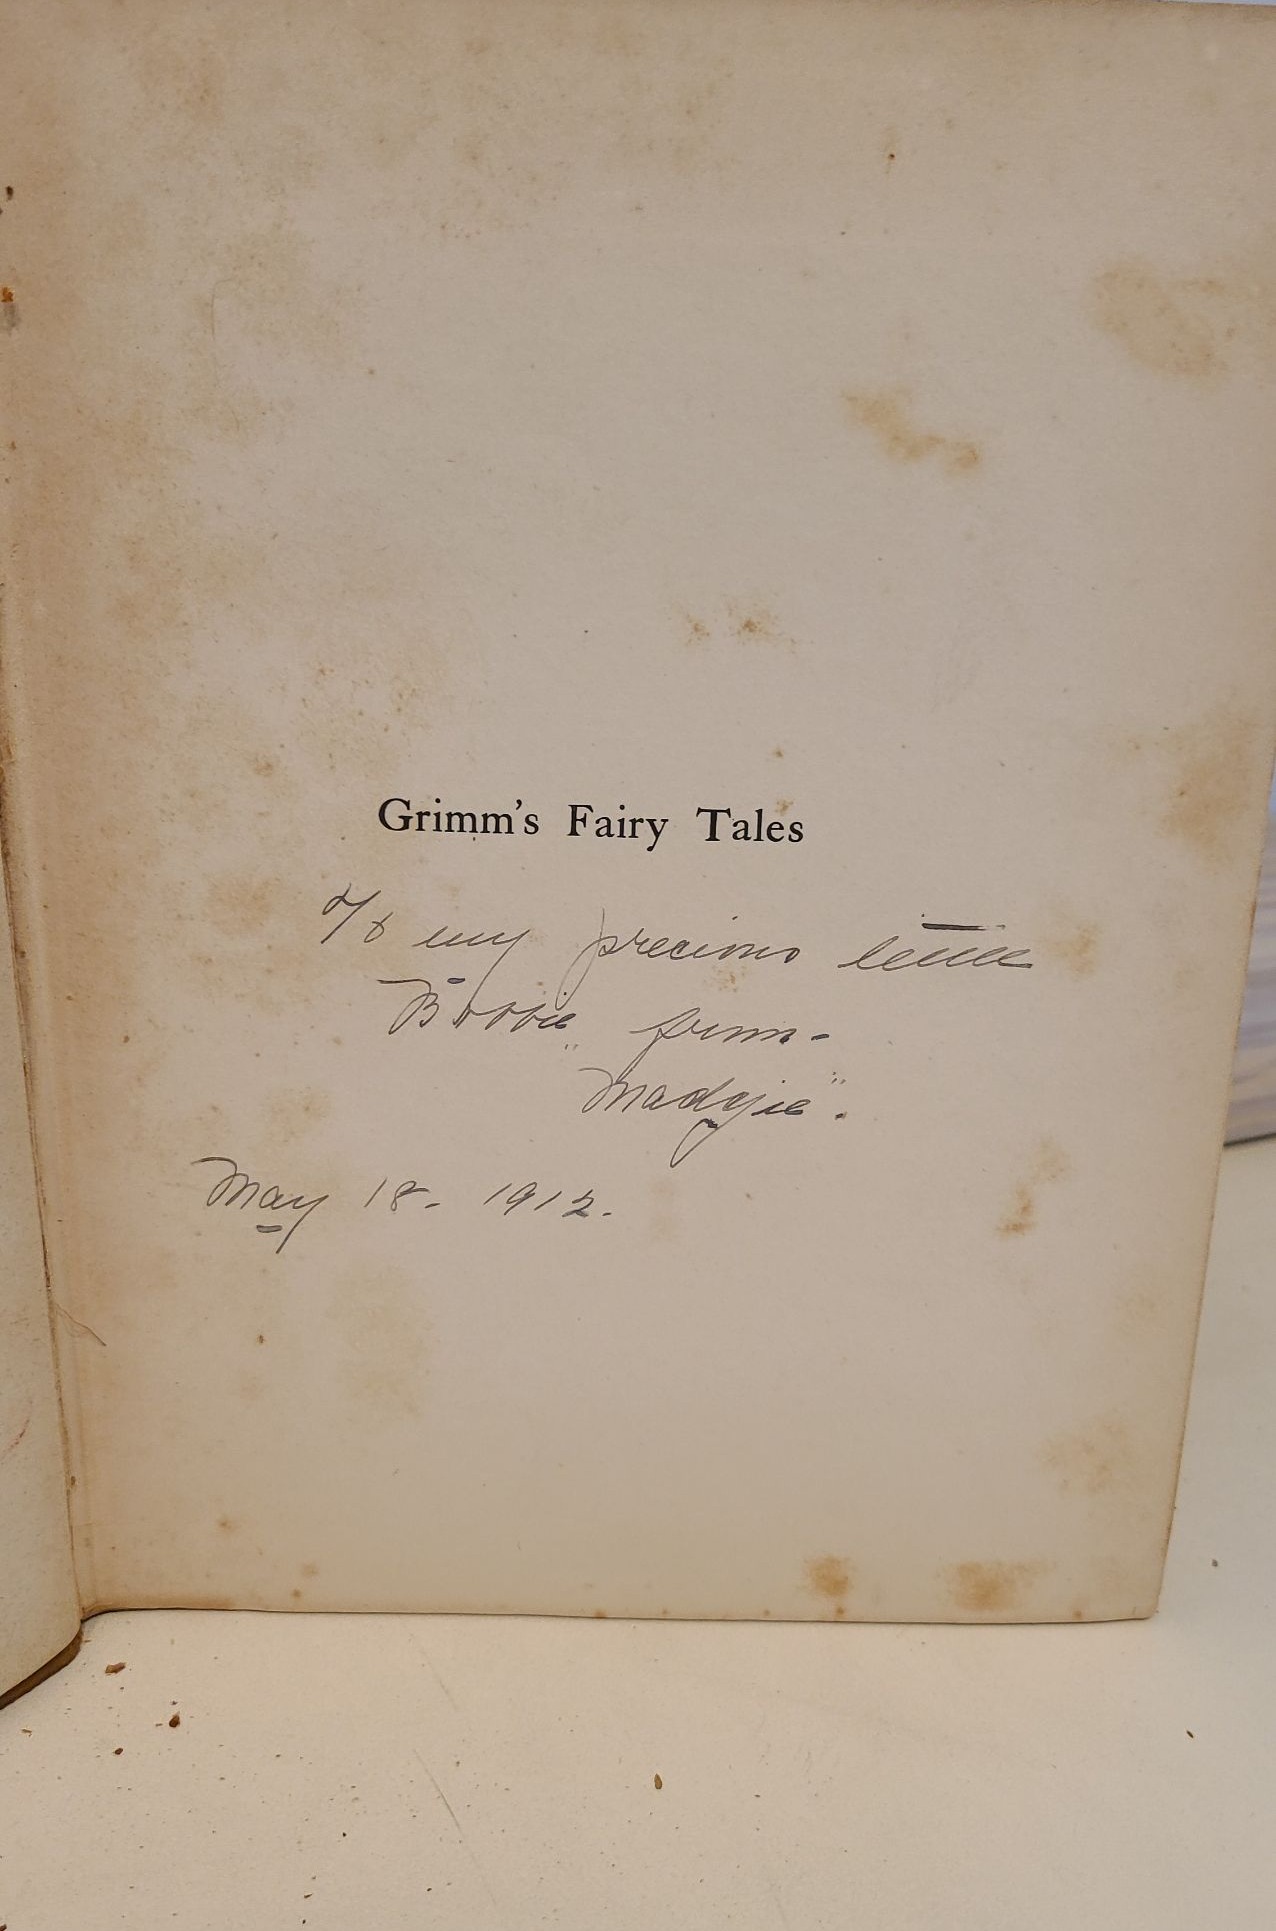 Grimm's Fairy Tales
To my precious little
Bobbie" from-
Madgie".
May 18- 1912.